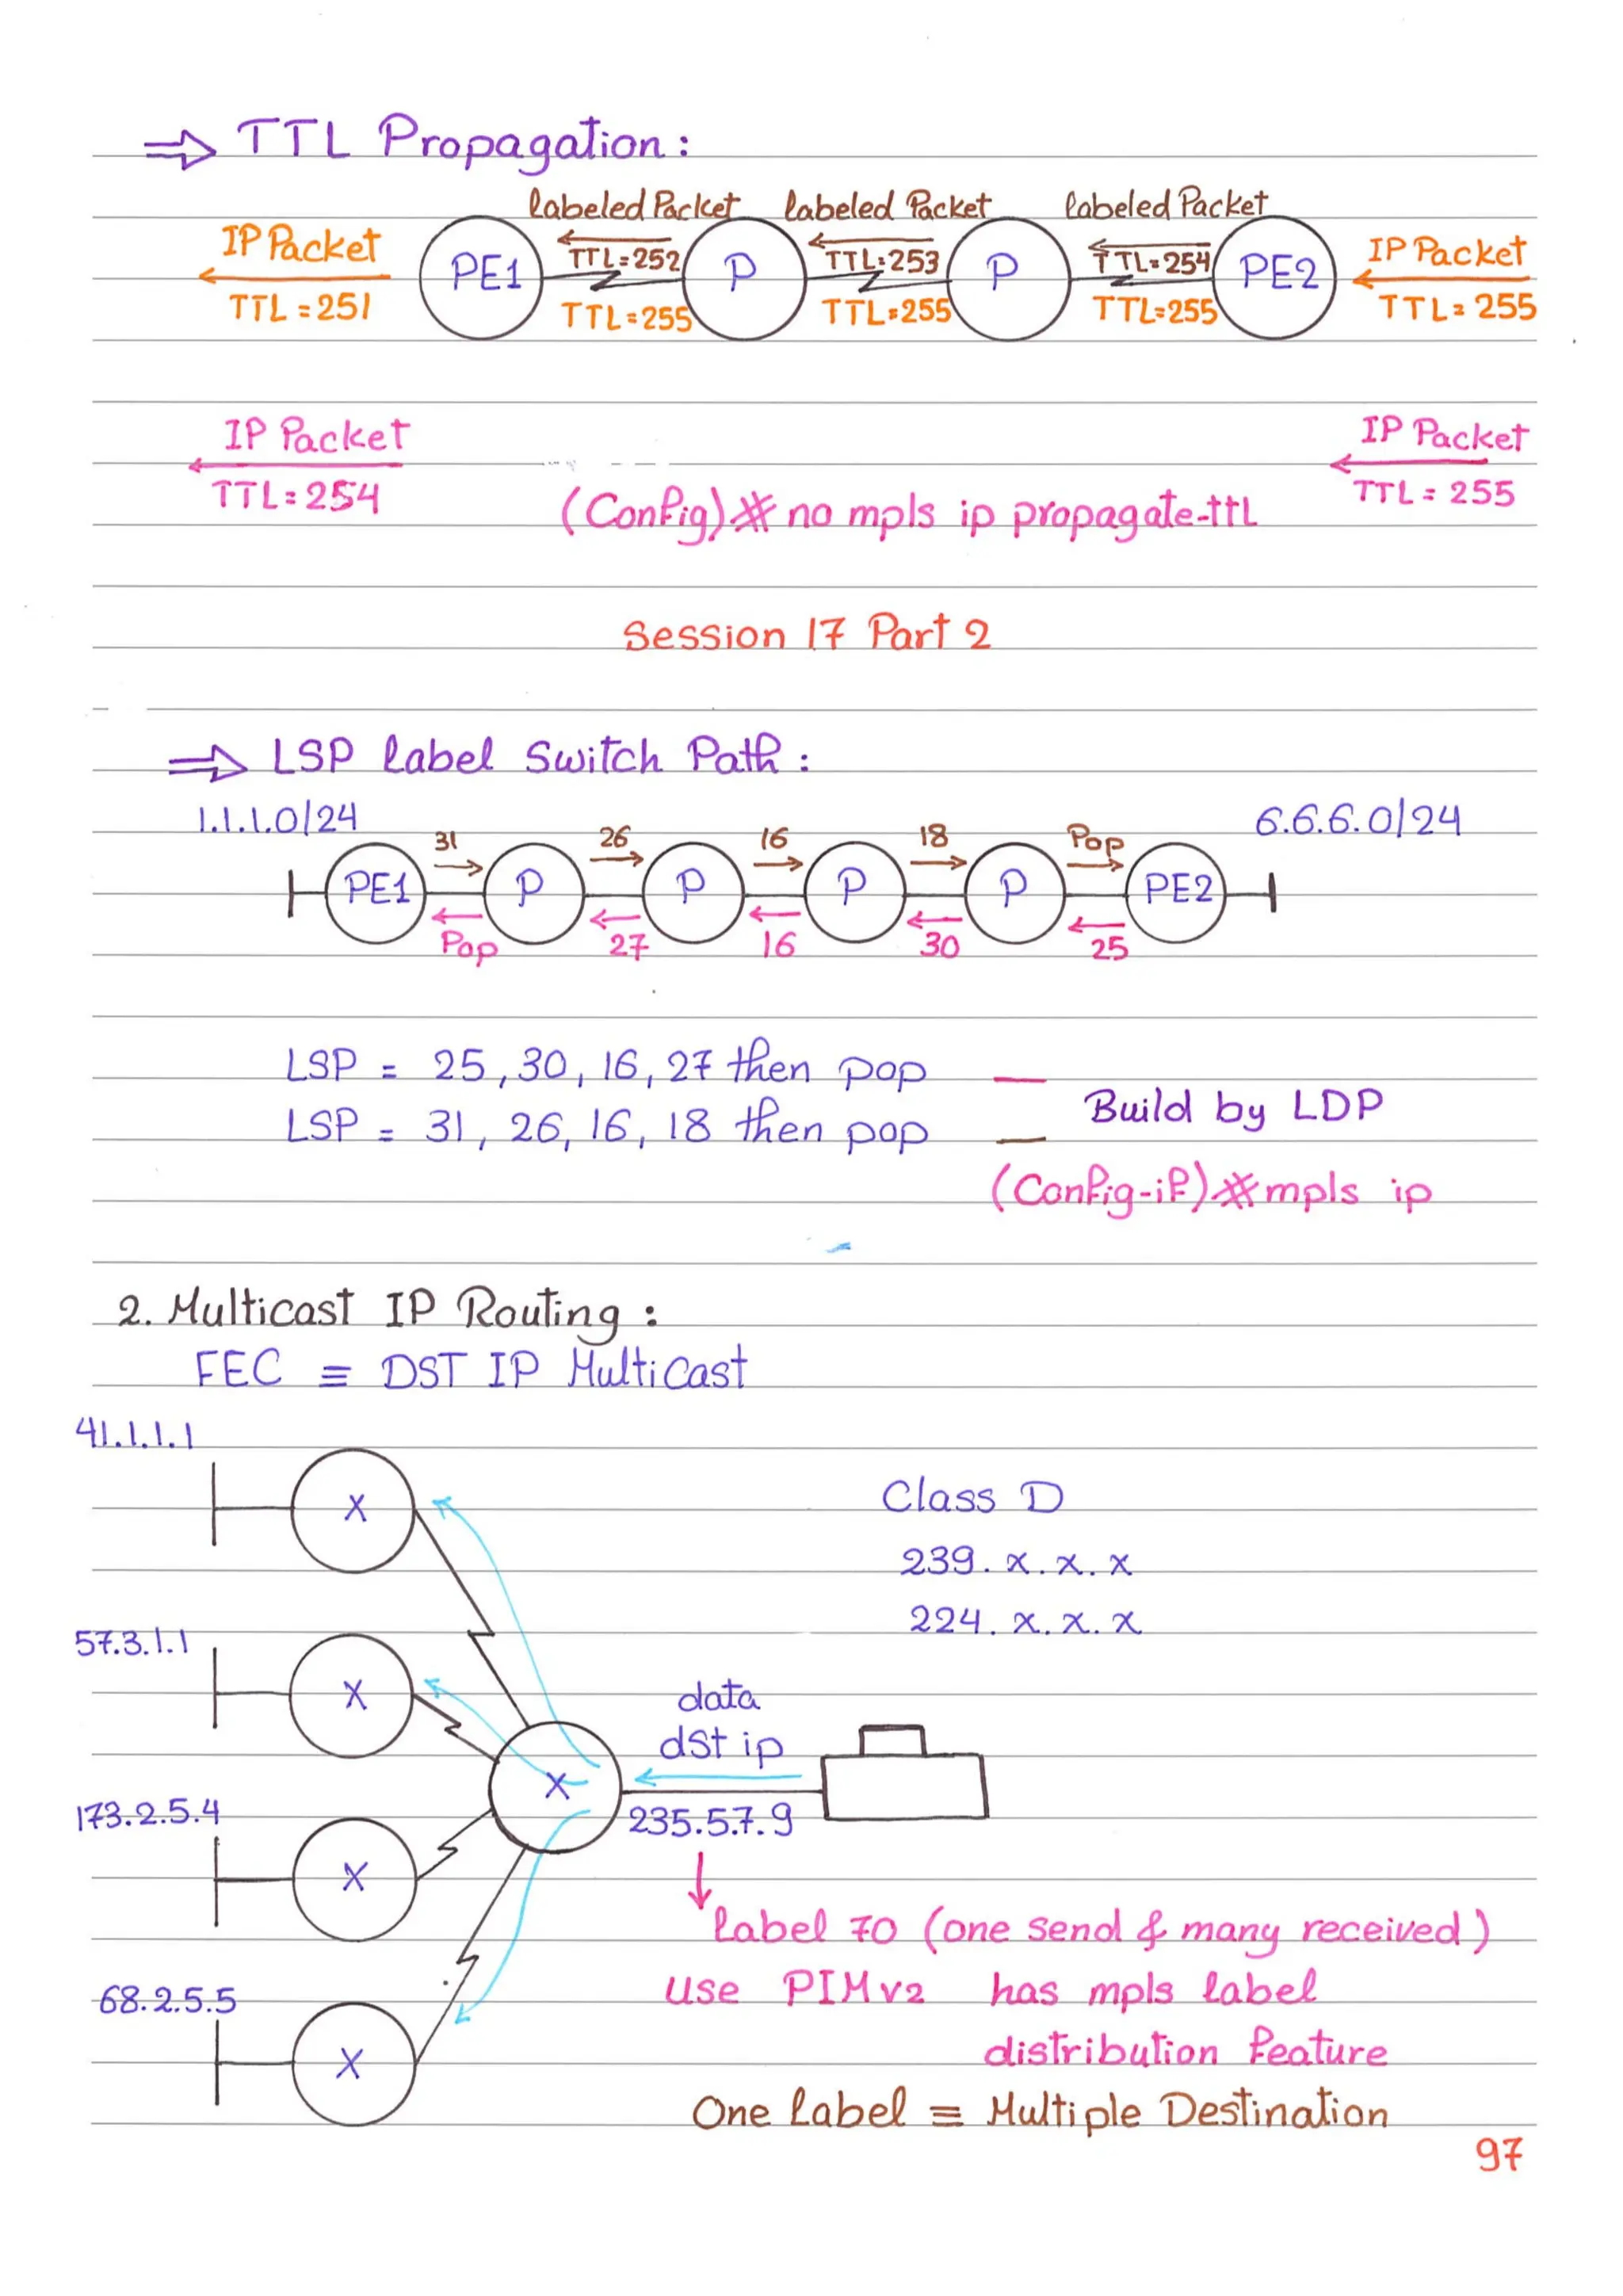 ⇒ TTL Propagation:
labeled Packet labeled Packet labeled Packet
IP Packet PE1 TTL=252 P TTL=253 P TTL=254 PE2 IP Packet
TTL=251 TTL=255 TTL=255 TTL=255 TTL=255
IP Packet IP Packet
TTL=254 TTL=255
(Config)# no mpls ip propagate-ttl
Session 17 Part 2
⇒ LSP label Switch Path:
1.1.1.0/24 6.6.6.0/24
31 26 16 18 Pop
PE1 P P P P PE2
Pop 27 16 30 25
LSP = 25, 30, 16, 27 then pop —
LSP = 31, 26, 16, 18 then pop —
Build by LDP
(Config-if)# mpls ip
2. Multicast IP Routing:
FEC ≡ DST IP MultiCast
41.1.1.1
X
Class D
239.x.x.x
224.x.x.x
57.3.1.1
X
data
dst ip
X
235.5.7.9
173.2.5.4
X
label 70 (one send & many received)
68.2.5.5
use PIMv2 has mpls label
X
distribution feature
One label ≡ Multiple Destination
97